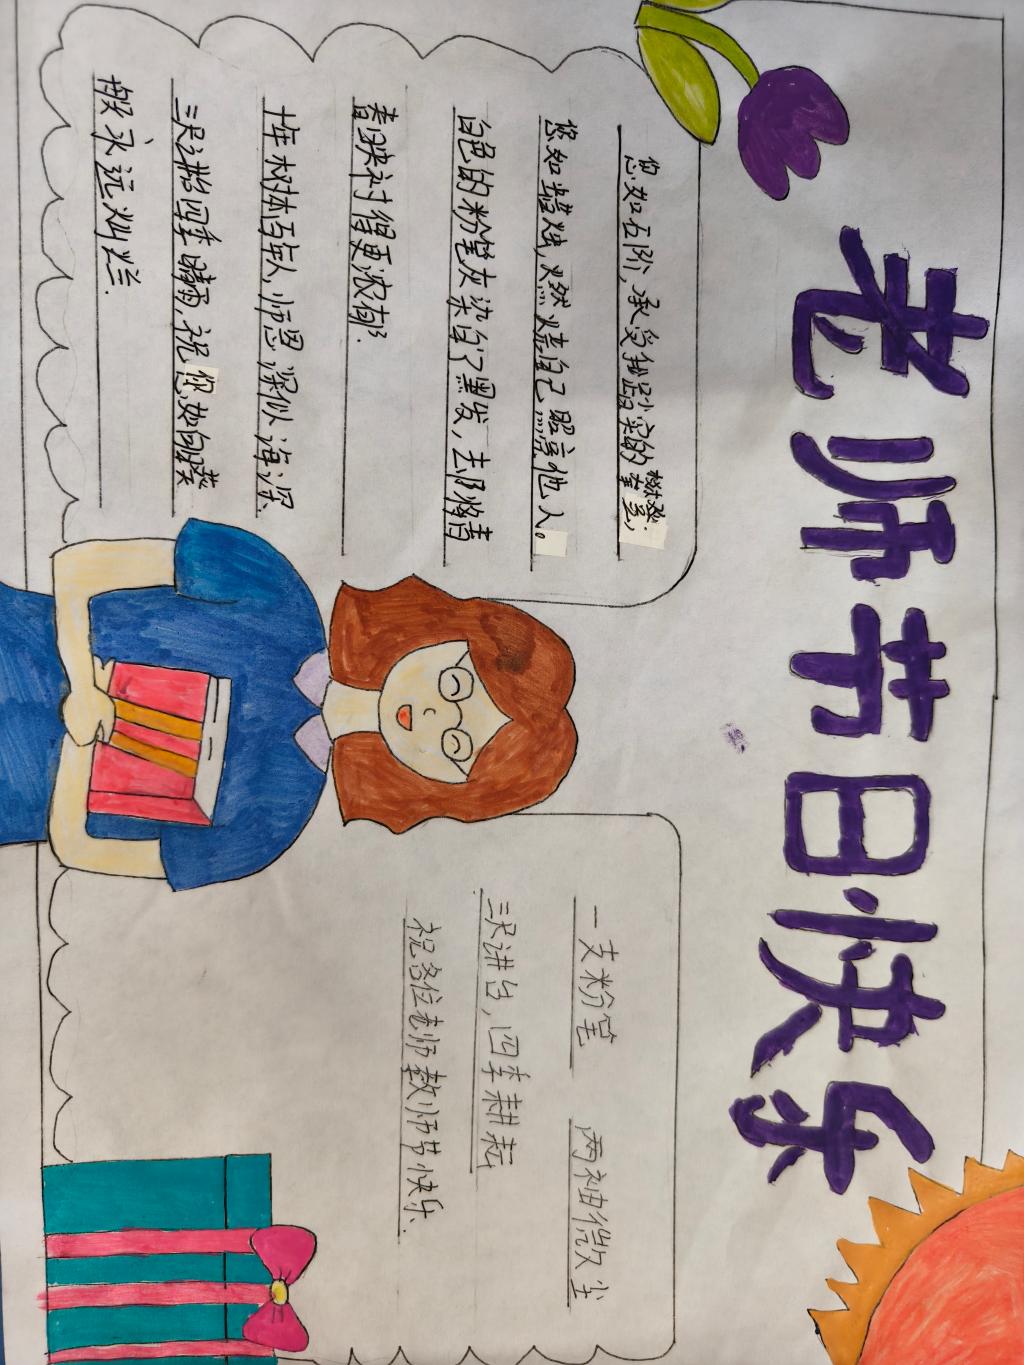 老师节日快乐
您如石阶,承受我踏实的攀登;
您如蜡烛,燃烧自己照亮他人。
白色的粉笔灰染白了黑发,却将青
春映衬得更浓郁.
十年树体百年人,师恩深似海深.
三尺讲台四季晴雨,祝您如向日葵
般永远灿烂.
一支粉笔 两袖微尘
三尺讲台,四季耕耘
祝各位老师教师节快乐.